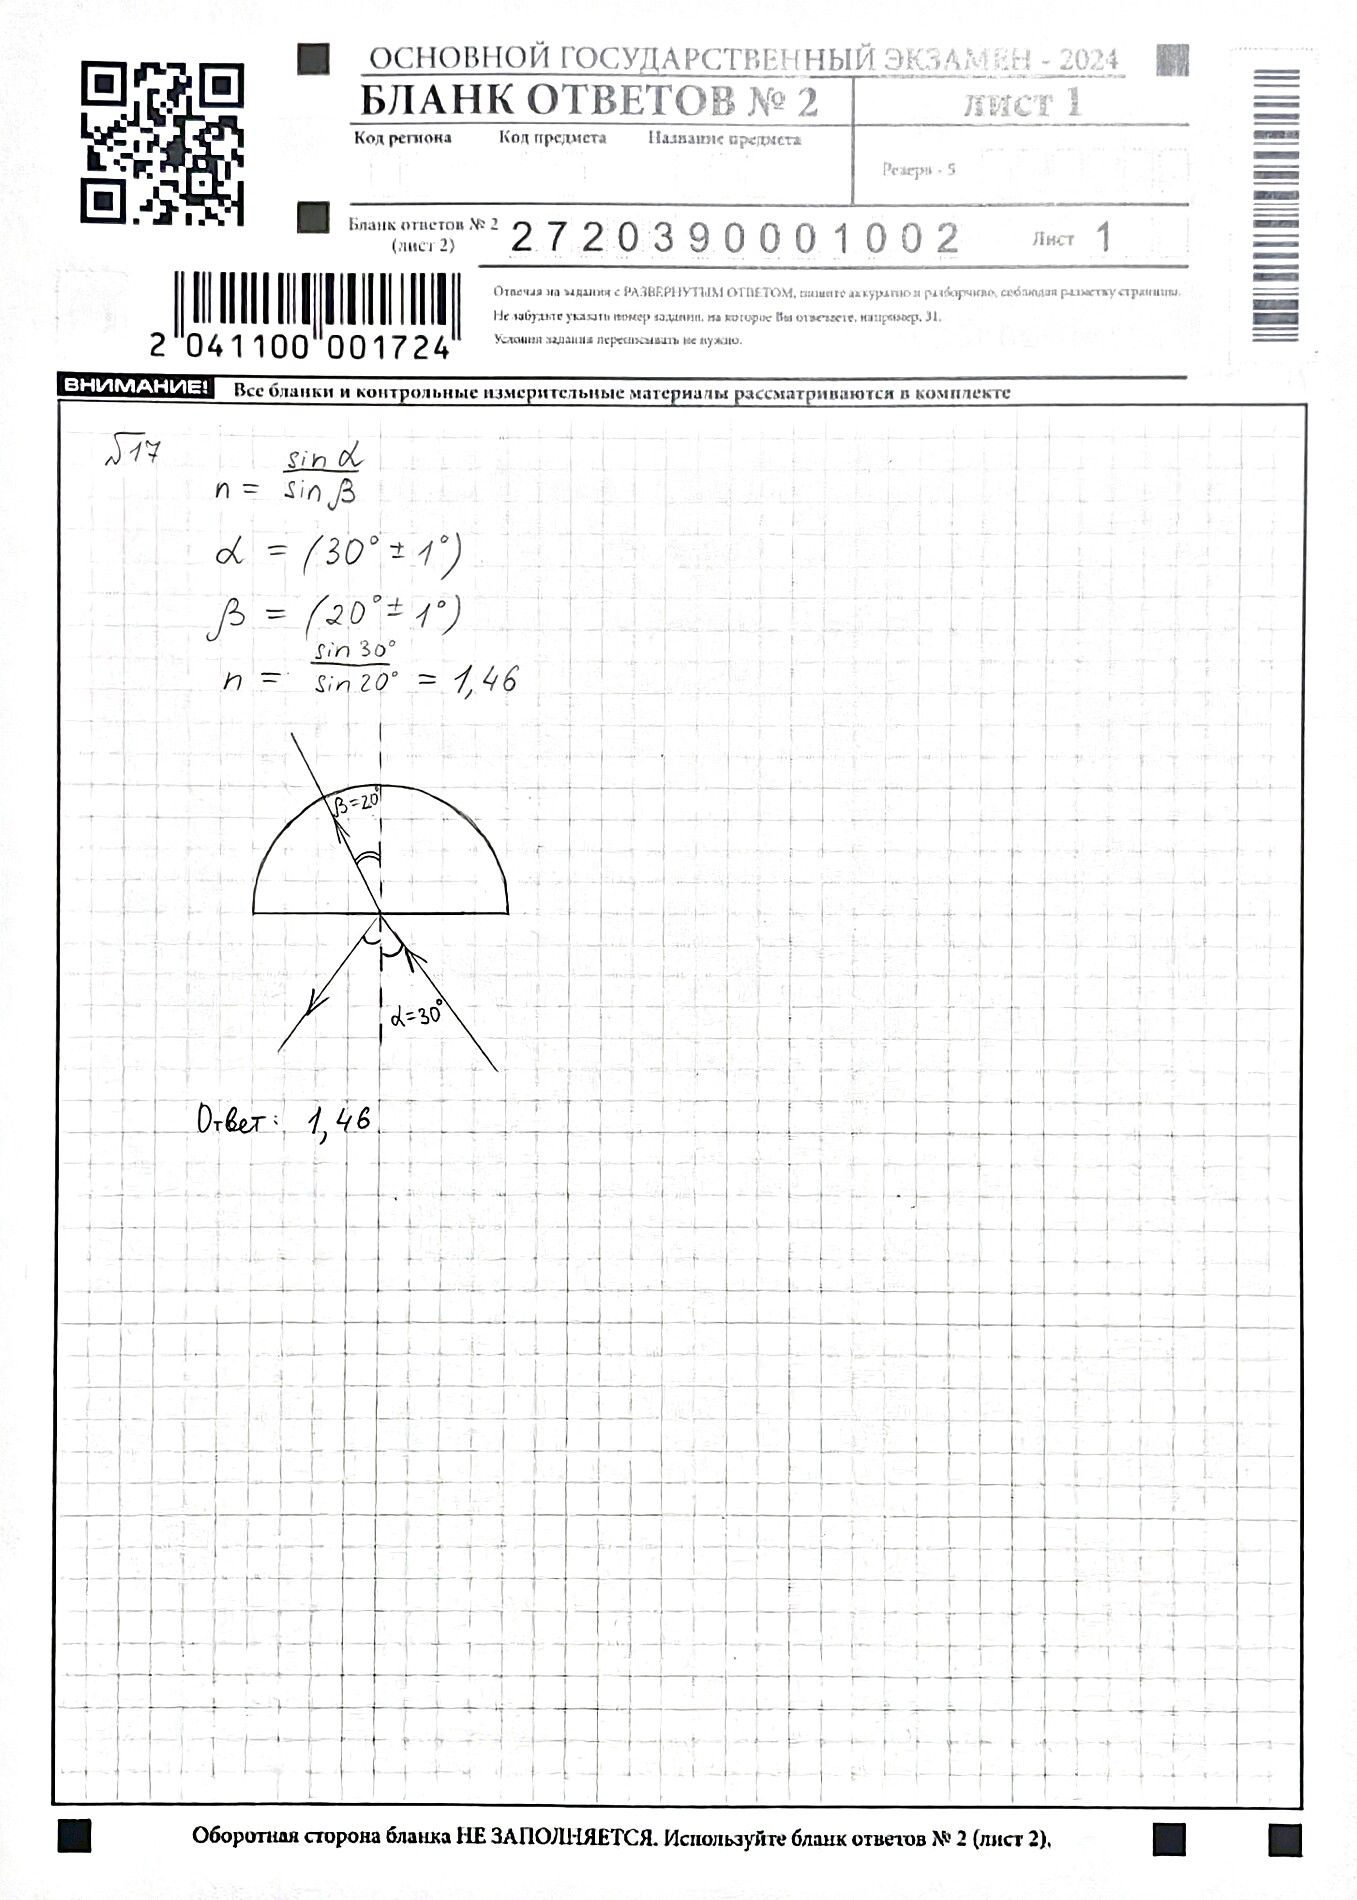 ОСНОВНОЙ ГОСУДАРСТВЕННЫЙ ЭКЗАМЕН - 2024
БЛАНК ОТВЕТОВ № 2
ЛИСТ 1
Код региона Код предмета Название предмета
Резерв - 5
Бланк ответов № 2
(лист 2)
2720390001002
Лист 1
2 041100 001724
Отвечая на задания с РАЗВЕРНУТЫМ ОТВЕТОМ, пишите аккуратно и разборчиво, соблюдая разметку страницы.
Не забудьте указать номер задания, на которое Вы отвечаете, например, 31.
Условия задания переписывать не нужно.
ВНИМАНИЕ! Все бланки и контрольные измерительные материалы рассматриваются в комплекте
№17
n = sin α / sin β
α = (30° ± 1°)
β = (20° ± 1°)
n = sin 30° / sin 20° = 1,46
β=20°
α=30°
Ответ: 1,46
Оборотная сторона бланка НЕ ЗАПОЛНЯЕТСЯ. Используйте бланк ответов № 2 (лист 2).